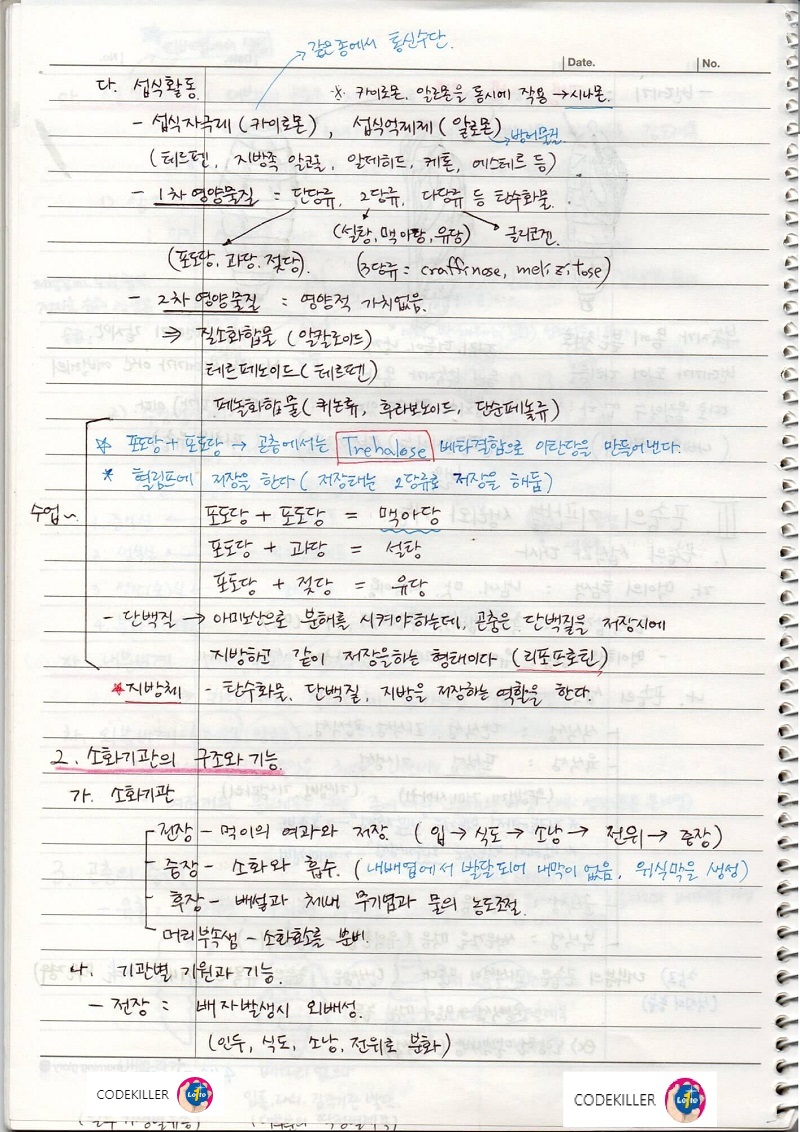 같은종에서 통신수단.
Date. No.
다. 섭식활동. ※ 카이로몬, 알로몬을 동시에 작용 → 시나몬.
- 섭식자극제 (카이로몬), 섭식억제제 (알로몬) → 방어물질
(테르펜, 지방족 알코올, 알데히드, 케톤, 에스테르 등)
- 1차 영양물질 = 단당류, 2당류, 다당류 등 탄수화물.
(설탕, 맥아당, 유당) 글리코겐.
(포도당, 과당, 젖당). (3당류 = craffinose, melizitose)
- 2차 영양물질 = 영양적 가치없음.
⇒ 질소화합물 (알칼로이드)
테르페노이드 (테르펜)
페놀화합물 (퀴논류, 후라보노이드, 단순페놀류)
☆ 포도당 + 포도당 → 곤충에서는 Trehalose 베타결합으로 이탄당을 만들어낸다.
* 혈림프에 저장을 한다 (저장태는 2당류로 저장을 해둠)
수업~ 포도당 + 포도당 = 맥아당
포도당 + 과당 = 설탕
포도당 + 젖당 = 유당
- 단백질 → 아미노산으로 분해를 시켜야하는데, 곤충은 단백질을 저장시에
지방하고 같이 저장을하는 형태이다 (리포프로틴)
★지방체 - 탄수화물, 단백질, 지방을 저장하는 역할을 한다.
2. 소화기관의 구조와 기능.
가. 소화기관
전장 - 먹이의 여과와 저장. (입 → 식도 → 소낭 → 전위 → 중장)
중장 - 소화와 흡수. (내배엽에서 발달되어 내막이 없음, 위식막을 생성)
후장 - 배설과 체내 무기염과 물의 농도조절.
머리부속샘 - 소화효소를 분비.
나. 기관별 기원과 기능.
- 전장 = 배자발생시 외배성.
(인두, 식도, 소낭, 전위로 분화)
CODEKILLER Lotto CODEKILLER Lotto